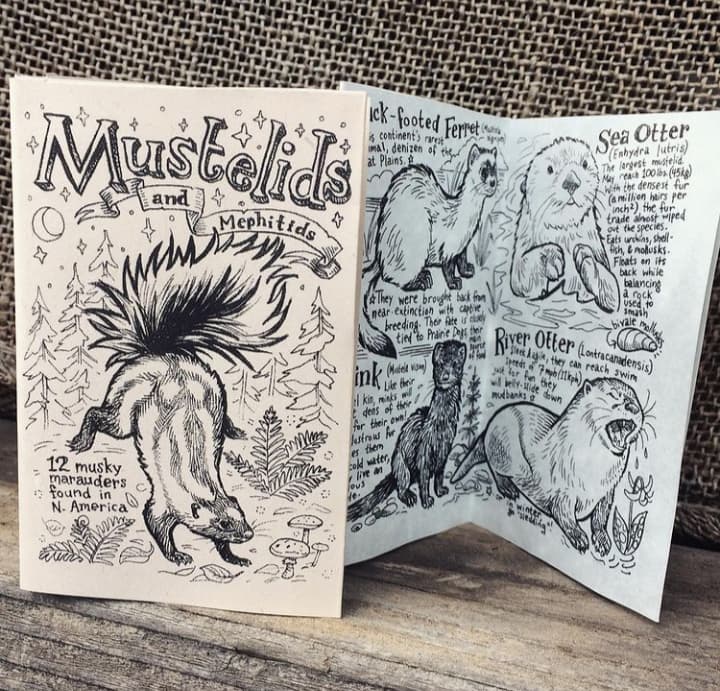 Mustelids
and
Mephitids
12 musky
marauders
found in
N. America
ck-footed Ferret
is continent's rarest
mal, denizen of the
at Plains.
They were brought back from
near-extinction with captive
breeding. Their fate is closely
tied to Prairie Dogs their
ink (Mustela vison)
Like their
l kin, minks will
dens of their
for their own.
ustrous fur
es them
cold water,
live an
ous
le.
Sea Otter
(Enhydra lutris)
The largest mustelid.
May reach 100 lbs. (45kg)
With the densest fur
(a million hairs per
inch²) the fur
trade almost wiped
out the species.
Eats urchins, shell-
fish, & mollusks.
Floats on its
back while
balancing
a rock
used to
smash
bivalve mollusks
River Otter (Lontra canadensis)
they can reach swim
speeds of 7mph (11kph)
Just for fun they
will belly-slide down
mudbanks